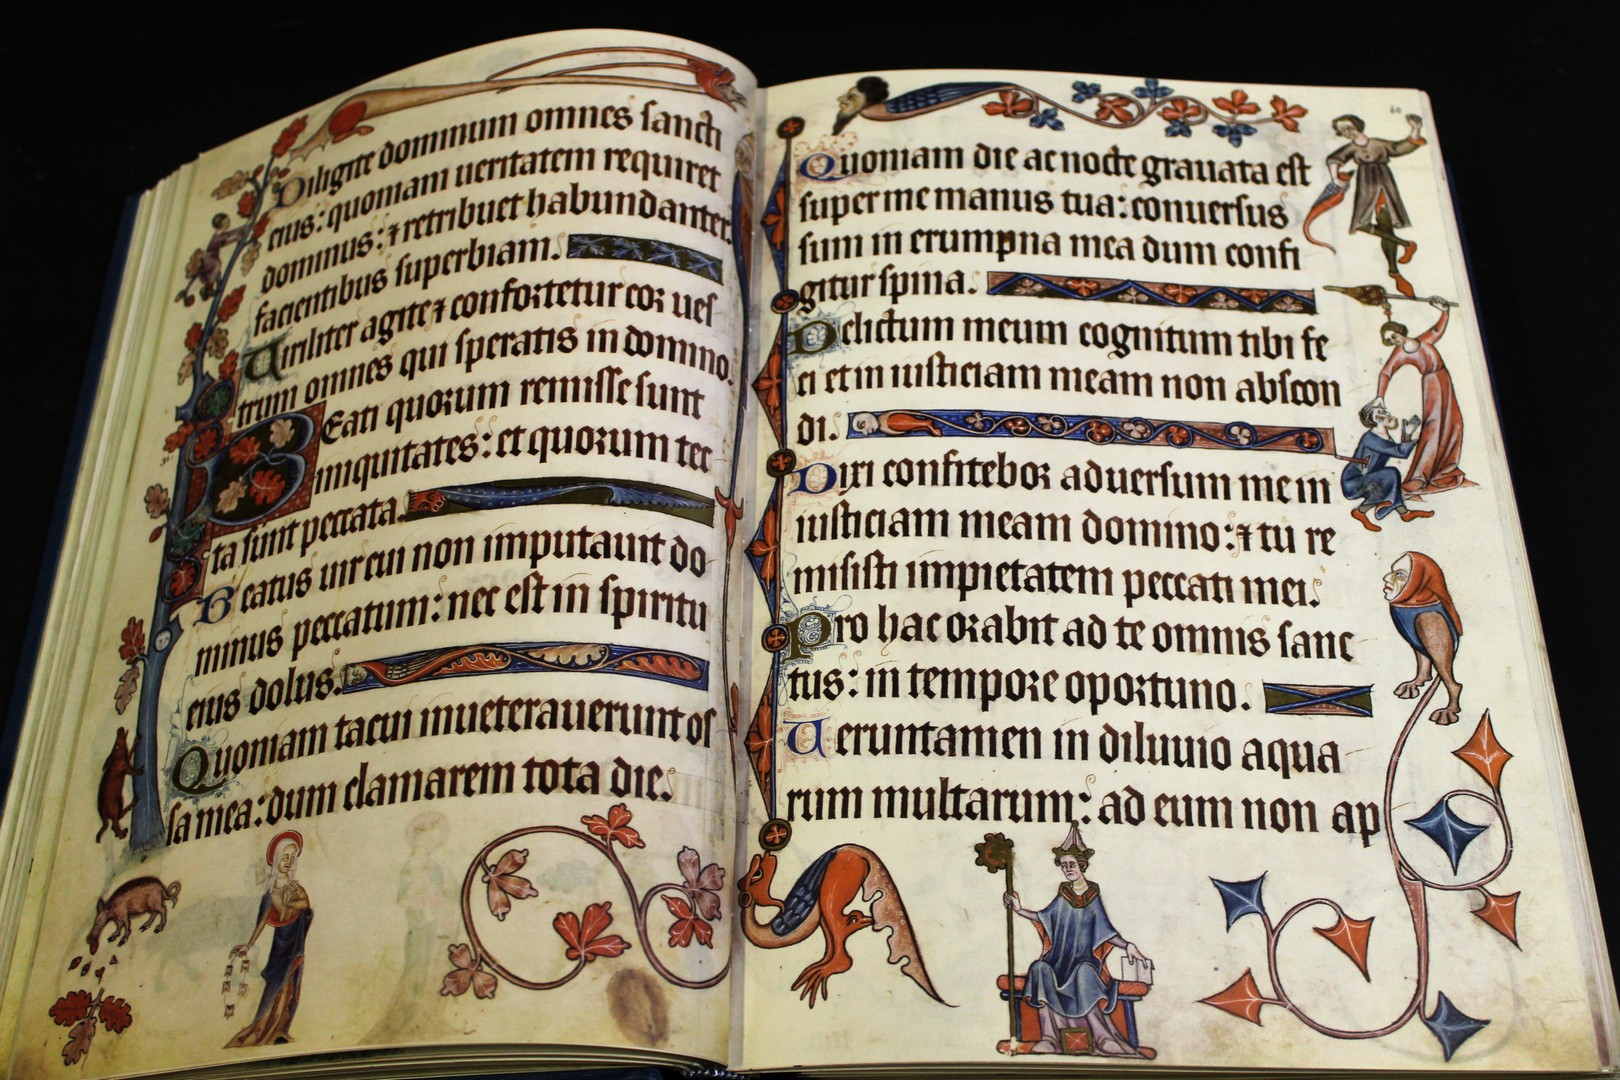 Diligite dominum omnes sancti
eius: quoniam ueritatem requiret
dominus: ⁊ retribuet habundanter
facientibus superbiam.
Uiriliter agite ⁊ confortetur cor ues
trum omnes qui speratis in domino.
Beati quorum remisse sunt
iniquitates: et quorum tec
ta sunt peccata.
Beatus uir cui non imputauit do
minus peccatum: nec est in spiritu
eius dolus.
Quoniam tacui inueterauerunt os
sa mea: dum clamarem tota die.
60
Quoniam die ac nocte grauata est
super me manus tua: conuersus
sum in erumpna mea dum confi
gitur spina.
Delictum meum cognitum tibi fe
ci et in iusticiam meam non abscon
di.
Dixi confitebor aduersum me in
iusticiam meam domino: ⁊ tu re
misisti impietatem peccati mei.
Pro hac orabit ad te omnis sanc
tus: in tempore oportuno.
Ueruntamen in diluuio aqua
rum multarum: ad eum non ap